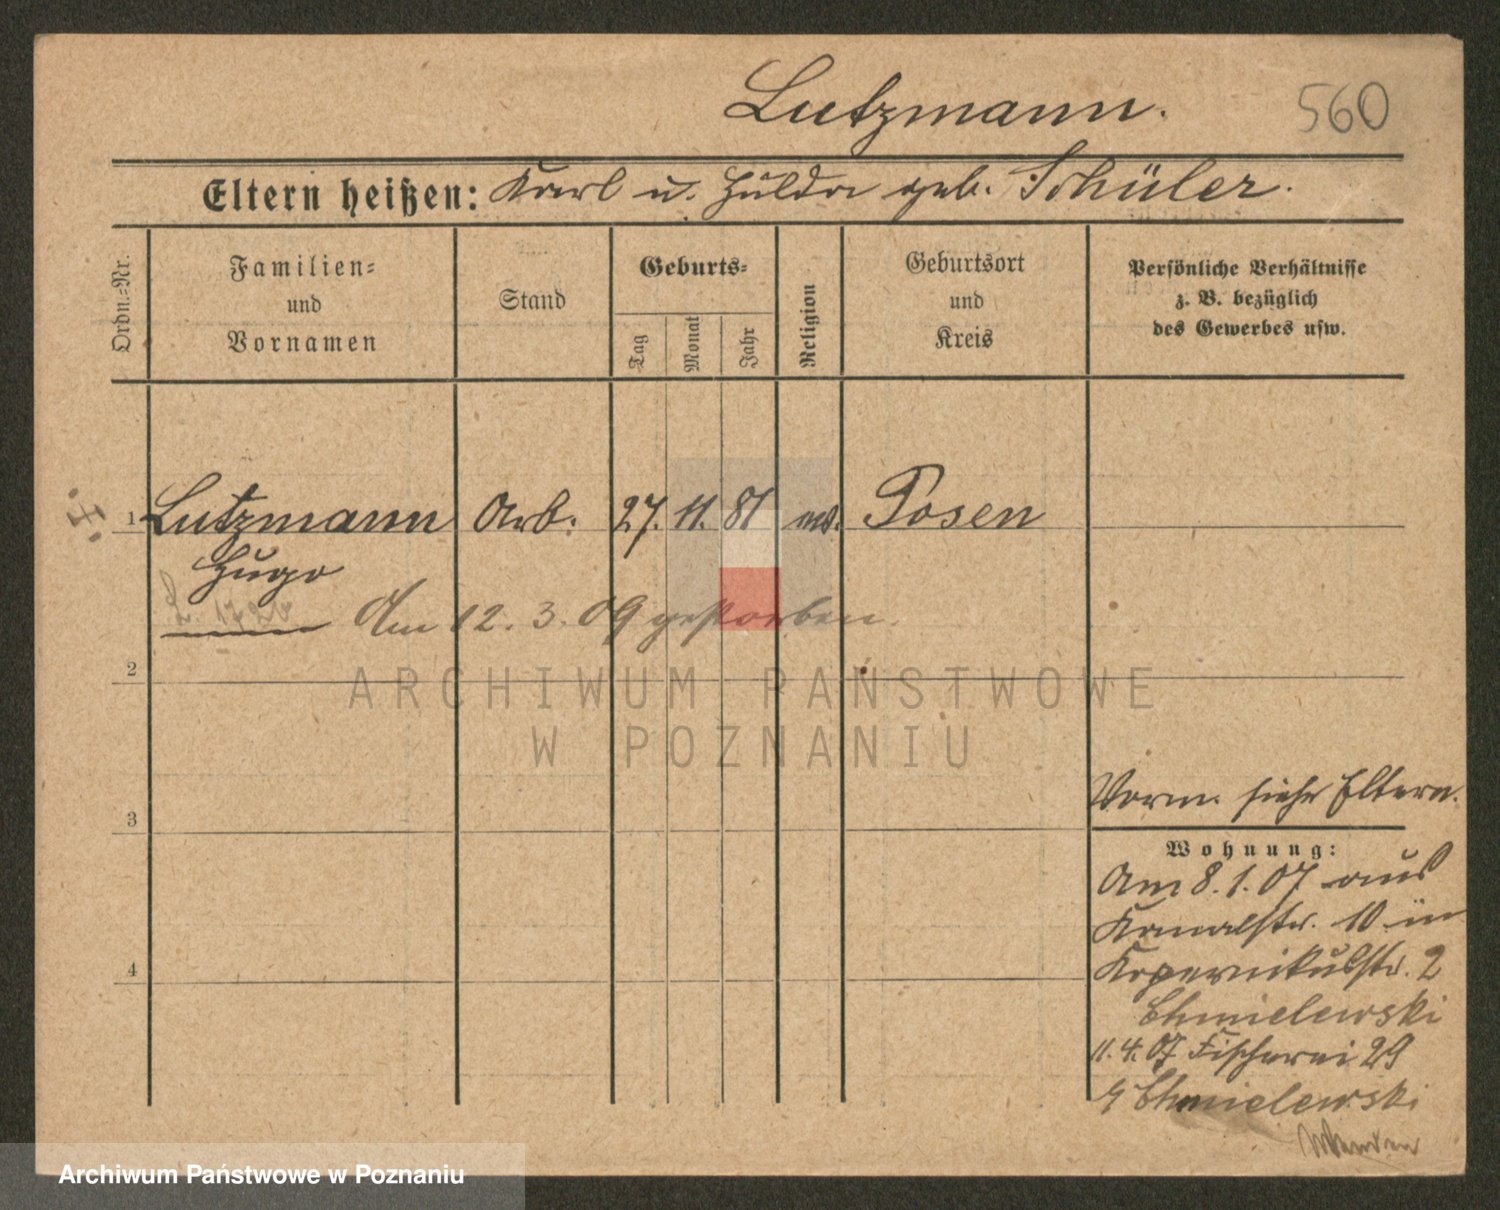 Lutzmann.
560
Eltern heißen: Karl u. Hulda geb. Schüler.
Ordn.=Nr.
Familien=
und
Vornamen
Stand
Geburts=
Tag
Monat
Jahr
Religion
Geburtsort
und
Kreis
Persönliche Verhältnisse
z. B. bezüglich
des Gewerbes usw.
1 Lutzmann Arb. 27. 11. 81 ev. Posen
Hugo
L. 1726 Am 12. 3. 09 gestorben.
2
ARCHIWUM PAŃSTWOWE
W POZNANIU
Vorm. siehe Eltern.
3
Wohnung:
Am 8. 1. 07 aus
Kanalstr. 10 in
4
Kopernikusstr. 2
Chmielewski
11. 4. 07 Fischerei 29
Chmielewski
Archiwum Państwowe w Poznaniu